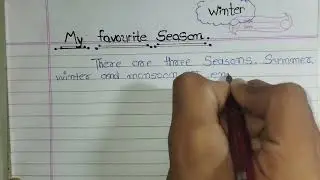 winter
My favourite Season.
There are three Seasons. Summer,
winter and monsoon